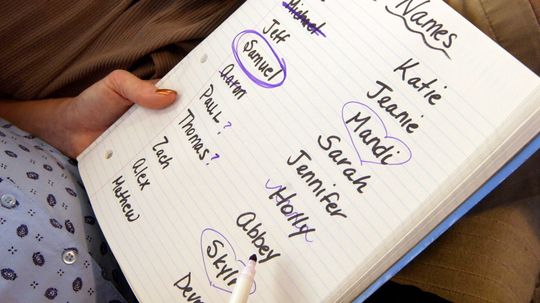 Names
Michael
Jeff
Samuel
Aaron
Paul?
Thomas?
Zach
Alex
Matthew
Katie
Jeanie
Mandi
Sarah
Jennifer
Holly
Abbey